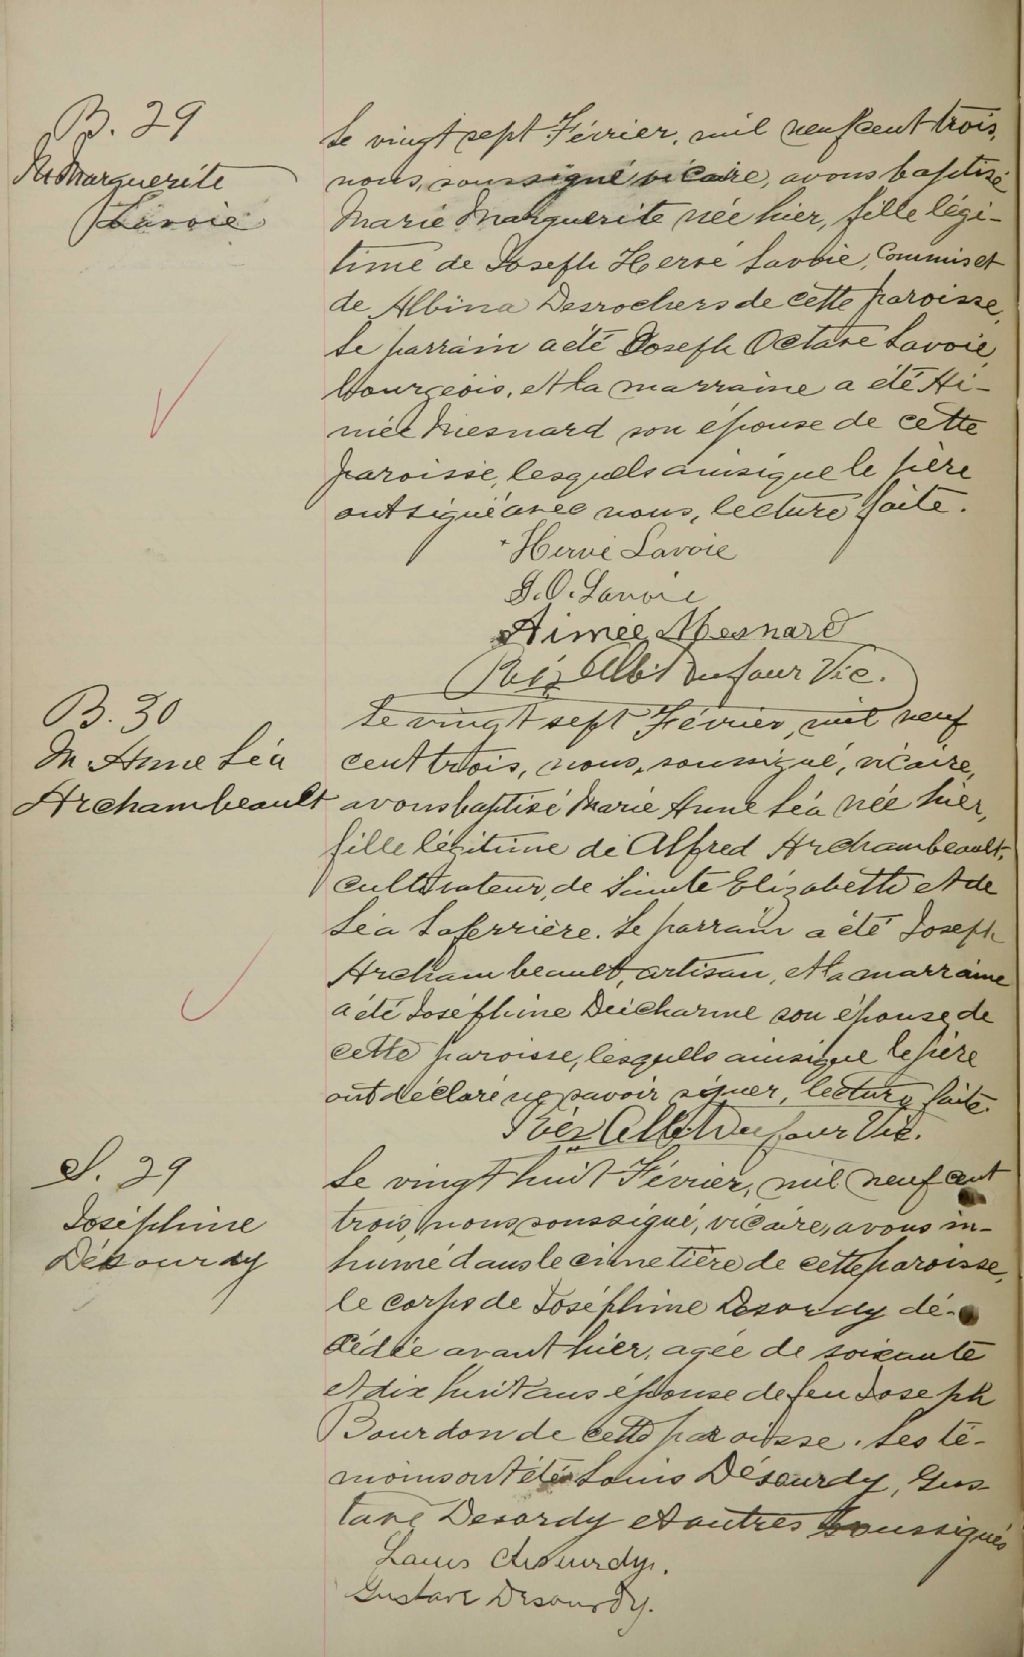 B. 29
M. Marguerite
Lavoie
Le vingt sept Février, mil neuf cent trois,
nous, soussigné vicaire, avons baptisé
Marie Marguerite née hier, fille légi-
time de Joseph Hervé Lavoie, Commis et
de Albina Desrochers de cette paroisse,
Le parrain a été Joseph Octave Lavoie,
bourgeois, et la marraine a été Ai-
mée Mesnard son épouse de cette
paroisse, lesquels ainsi que le père
ont signé avec nous, lecture faite.
Hervé Lavoie
J. O. Lavoie
Aimée Mesnard
Dufour Vic.
B. 30
M. Anne Léa
Archambeault
Le vingt sept Février, mil neuf
cent trois, nous, soussigné, vicaire,
avons baptisé Marie Anne Léa née hier,
fille légitime de Alfred Archambeault,
cultivateur, de Sainte Elizabeth et de
Léa Laferrière. Le parrain a été Joseph
Archambeault, artisan, et la marraine
a été Joséphine Ducharme son épouse de
cette paroisse, lesquels ainsi que le père
ont déclaré ne savoir signer, lecture faite.
Dufour Vic.
S. 29
Joséphine
Désourdy
Le vingt huit Février, mil neuf cent
trois, nous, soussigné, vicaire, avons in-
humé dans le cimetière de cette paroisse,
le corps de Joséphine Desordy dé-
cédée avant hier, agée de soixante
et dix huit ans épouse de feu Joseph
Bourdon de cette paroisse. Les té-
moins ont été Louis Désourdy, Gus-
tave Desordy et autres soussignés
Louis Desourdy.
Gustave Desourdy.